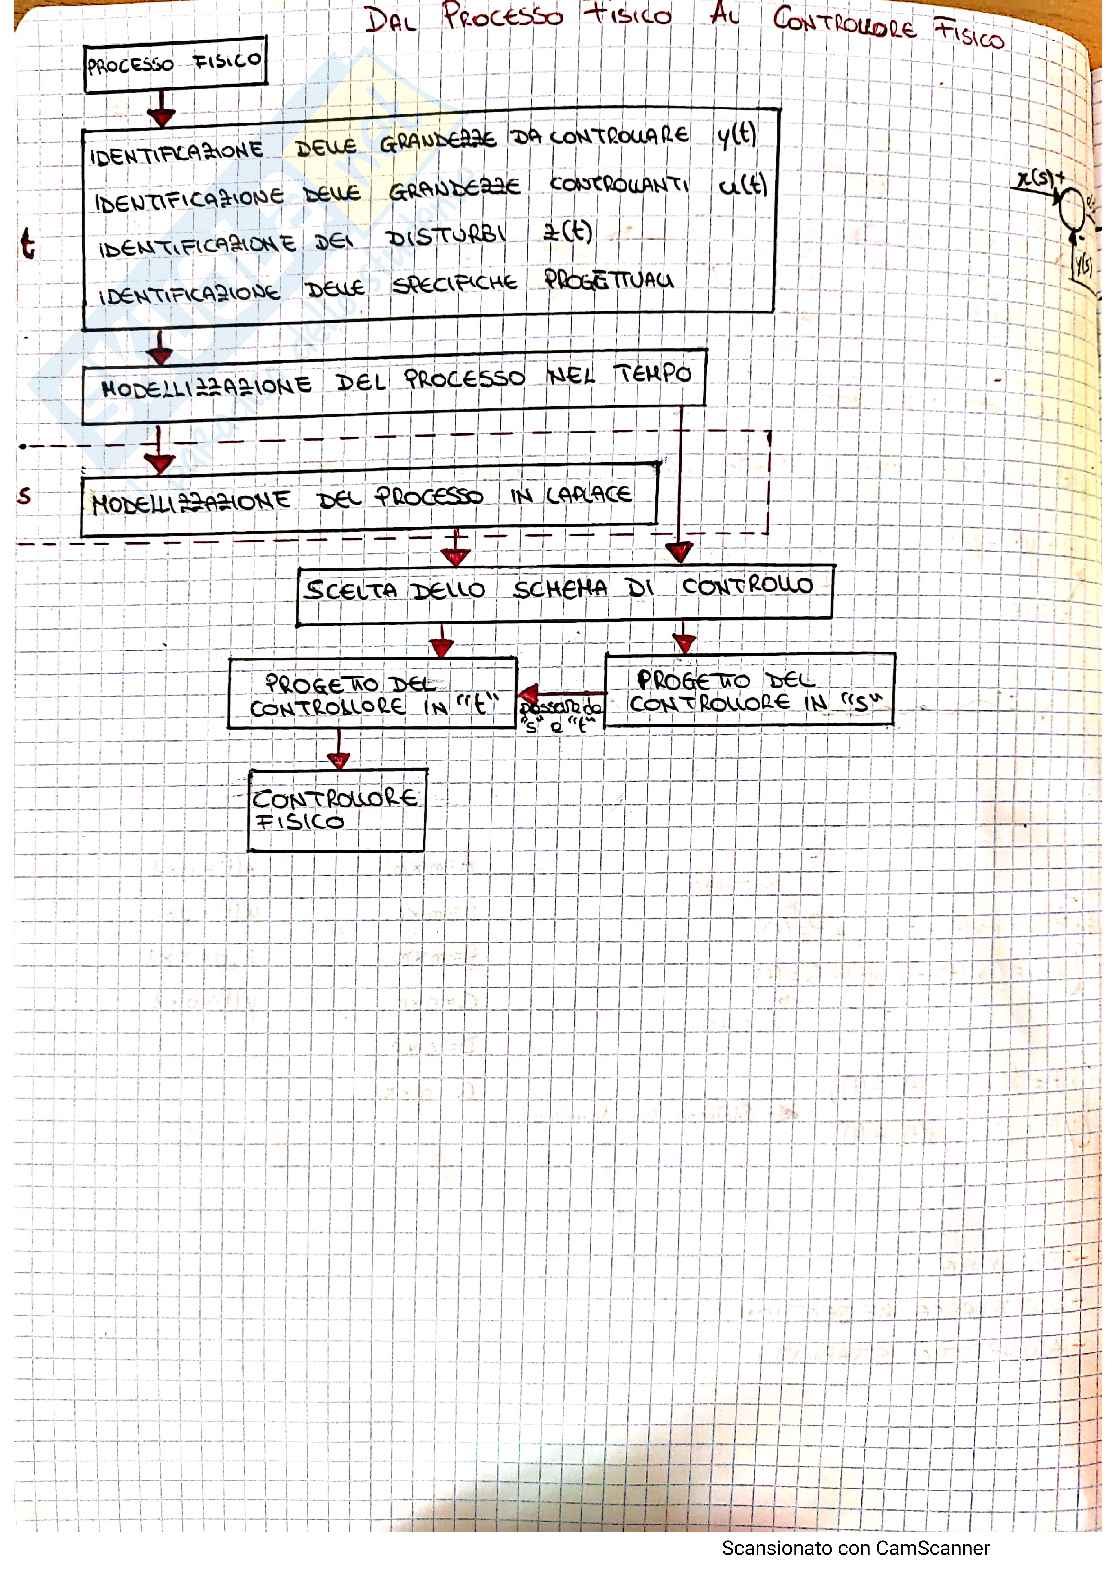 DAL PROCESSO FISICO AL CONTROLLORE FISICO
PROCESSO FISICO
IDENTIFICAZIONE DELLE GRANDEZZE DA CONTROLLARE y(t)
IDENTIFICAZIONE DELLE GRANDEZZE CONTROLLANTI u(t)
IDENTIFICAZIONE DEI DISTURBI z(t)
IDENTIFICAZIONE DELLE SPECIFICHE PROGETTUALI
t
x(s) +
-
y(s)
MODELLIZZAZIONE DEL PROCESSO NEL TEMPO
s
MODELLIZZAZIONE DEL PROCESSO IN LAPLACE
SCELTA DELLO SCHEMA DI CONTROLLO
PROGETTO DEL
CONTROLLORE IN "t"
passare da
"s" a "t"
PROGETTO DEL
CONTROLLORE IN "S"
CONTROLLORE
FISICO
Scansionato con CamScanner